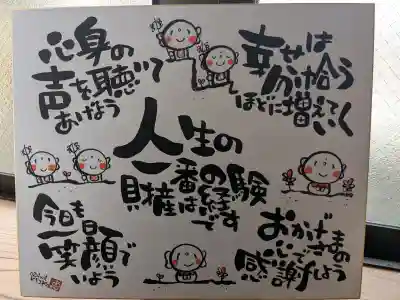 心身の
声を聴いて
あげなう
幸せは
分け拾う
ほどに増えて
いく
人生の
一番の
財産は
経験
です
今日も
一日
笑顔で
いよう
おかげさまの
心で
感謝しよう